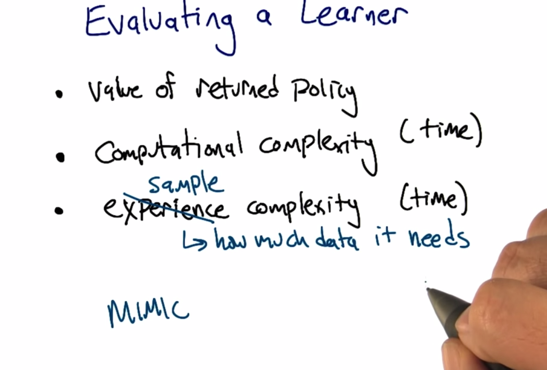 Evaluating a Learner
• Value of returned policy
• Computational complexity (time)
sample
• experience complexity (time)
↳ how much data it needs
MIMIC